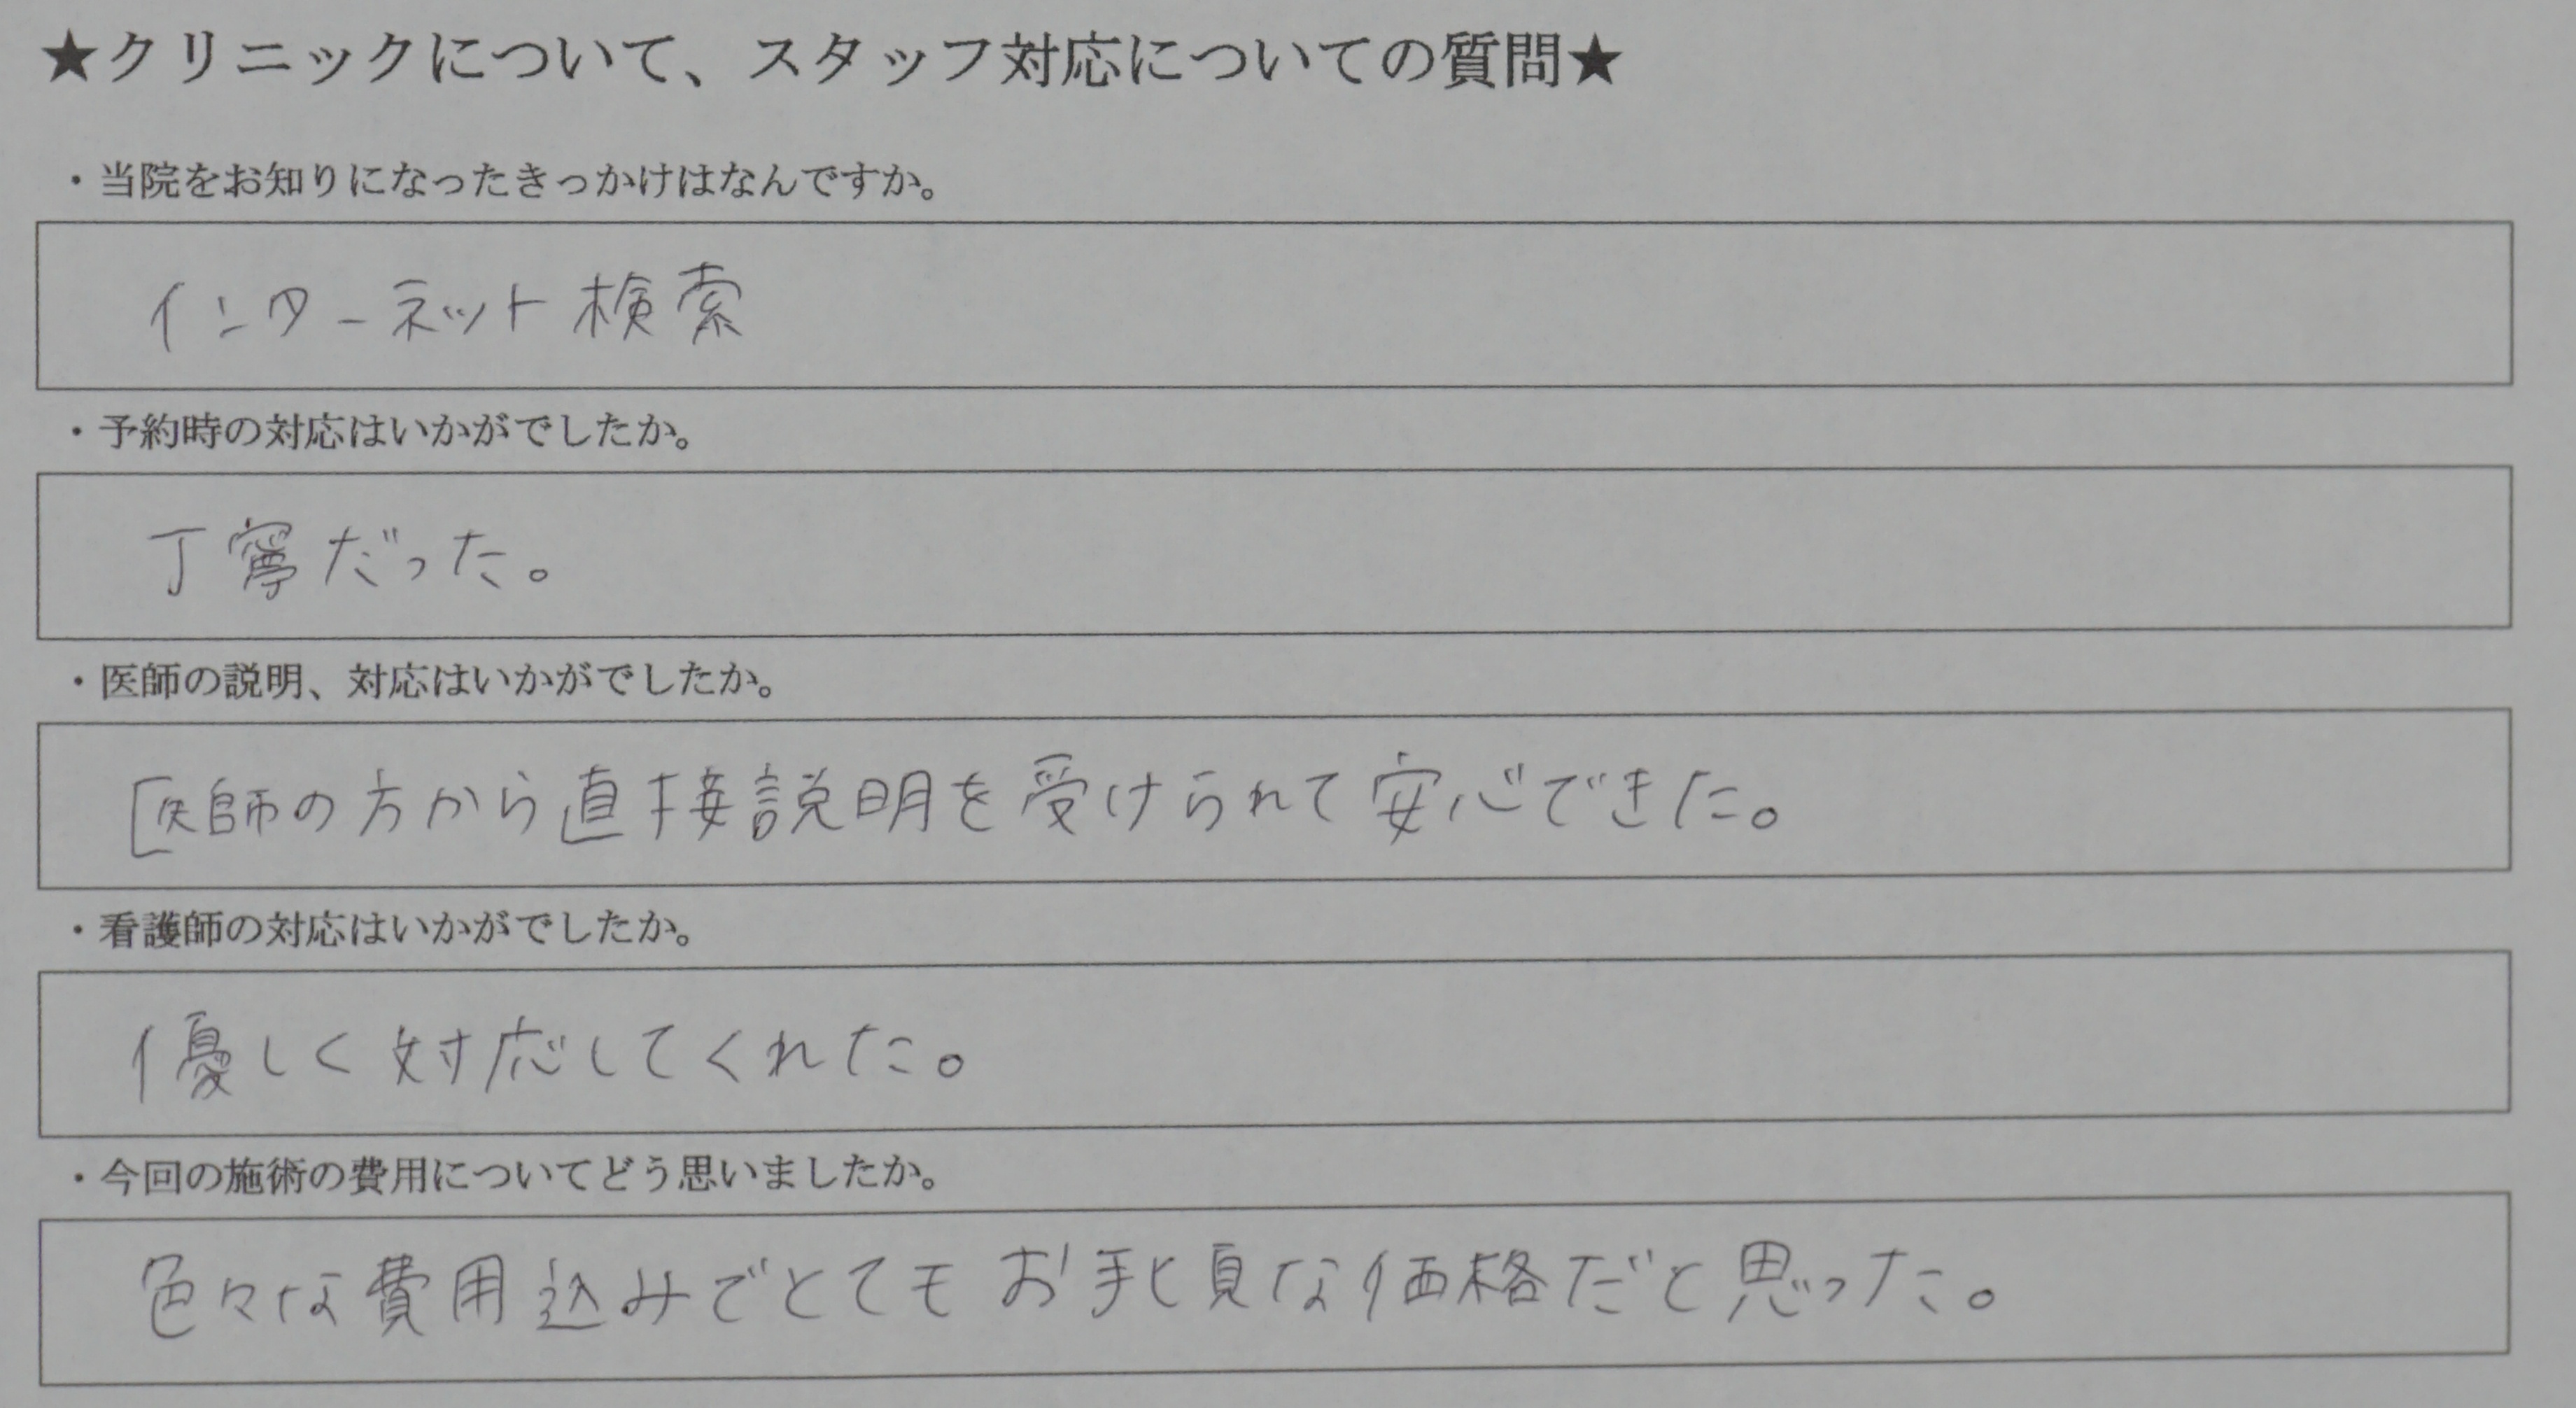 ★クリニックについて、スタッフ対応についての質問★
・当院をお知りになったきっかけはなんですか。
インターネット検索
・予約時の対応はいかがでしたか。
丁寧だった。
・医師の説明、対応はいかがでしたか。
医師の方から直接説明を受けられて安心できた。
・看護師の対応はいかがでしたか。
優しく対応してくれた。
・今回の施術の費用についてどう思いましたか。
色々な費用込みでとてもお手頃な価格だと思った。